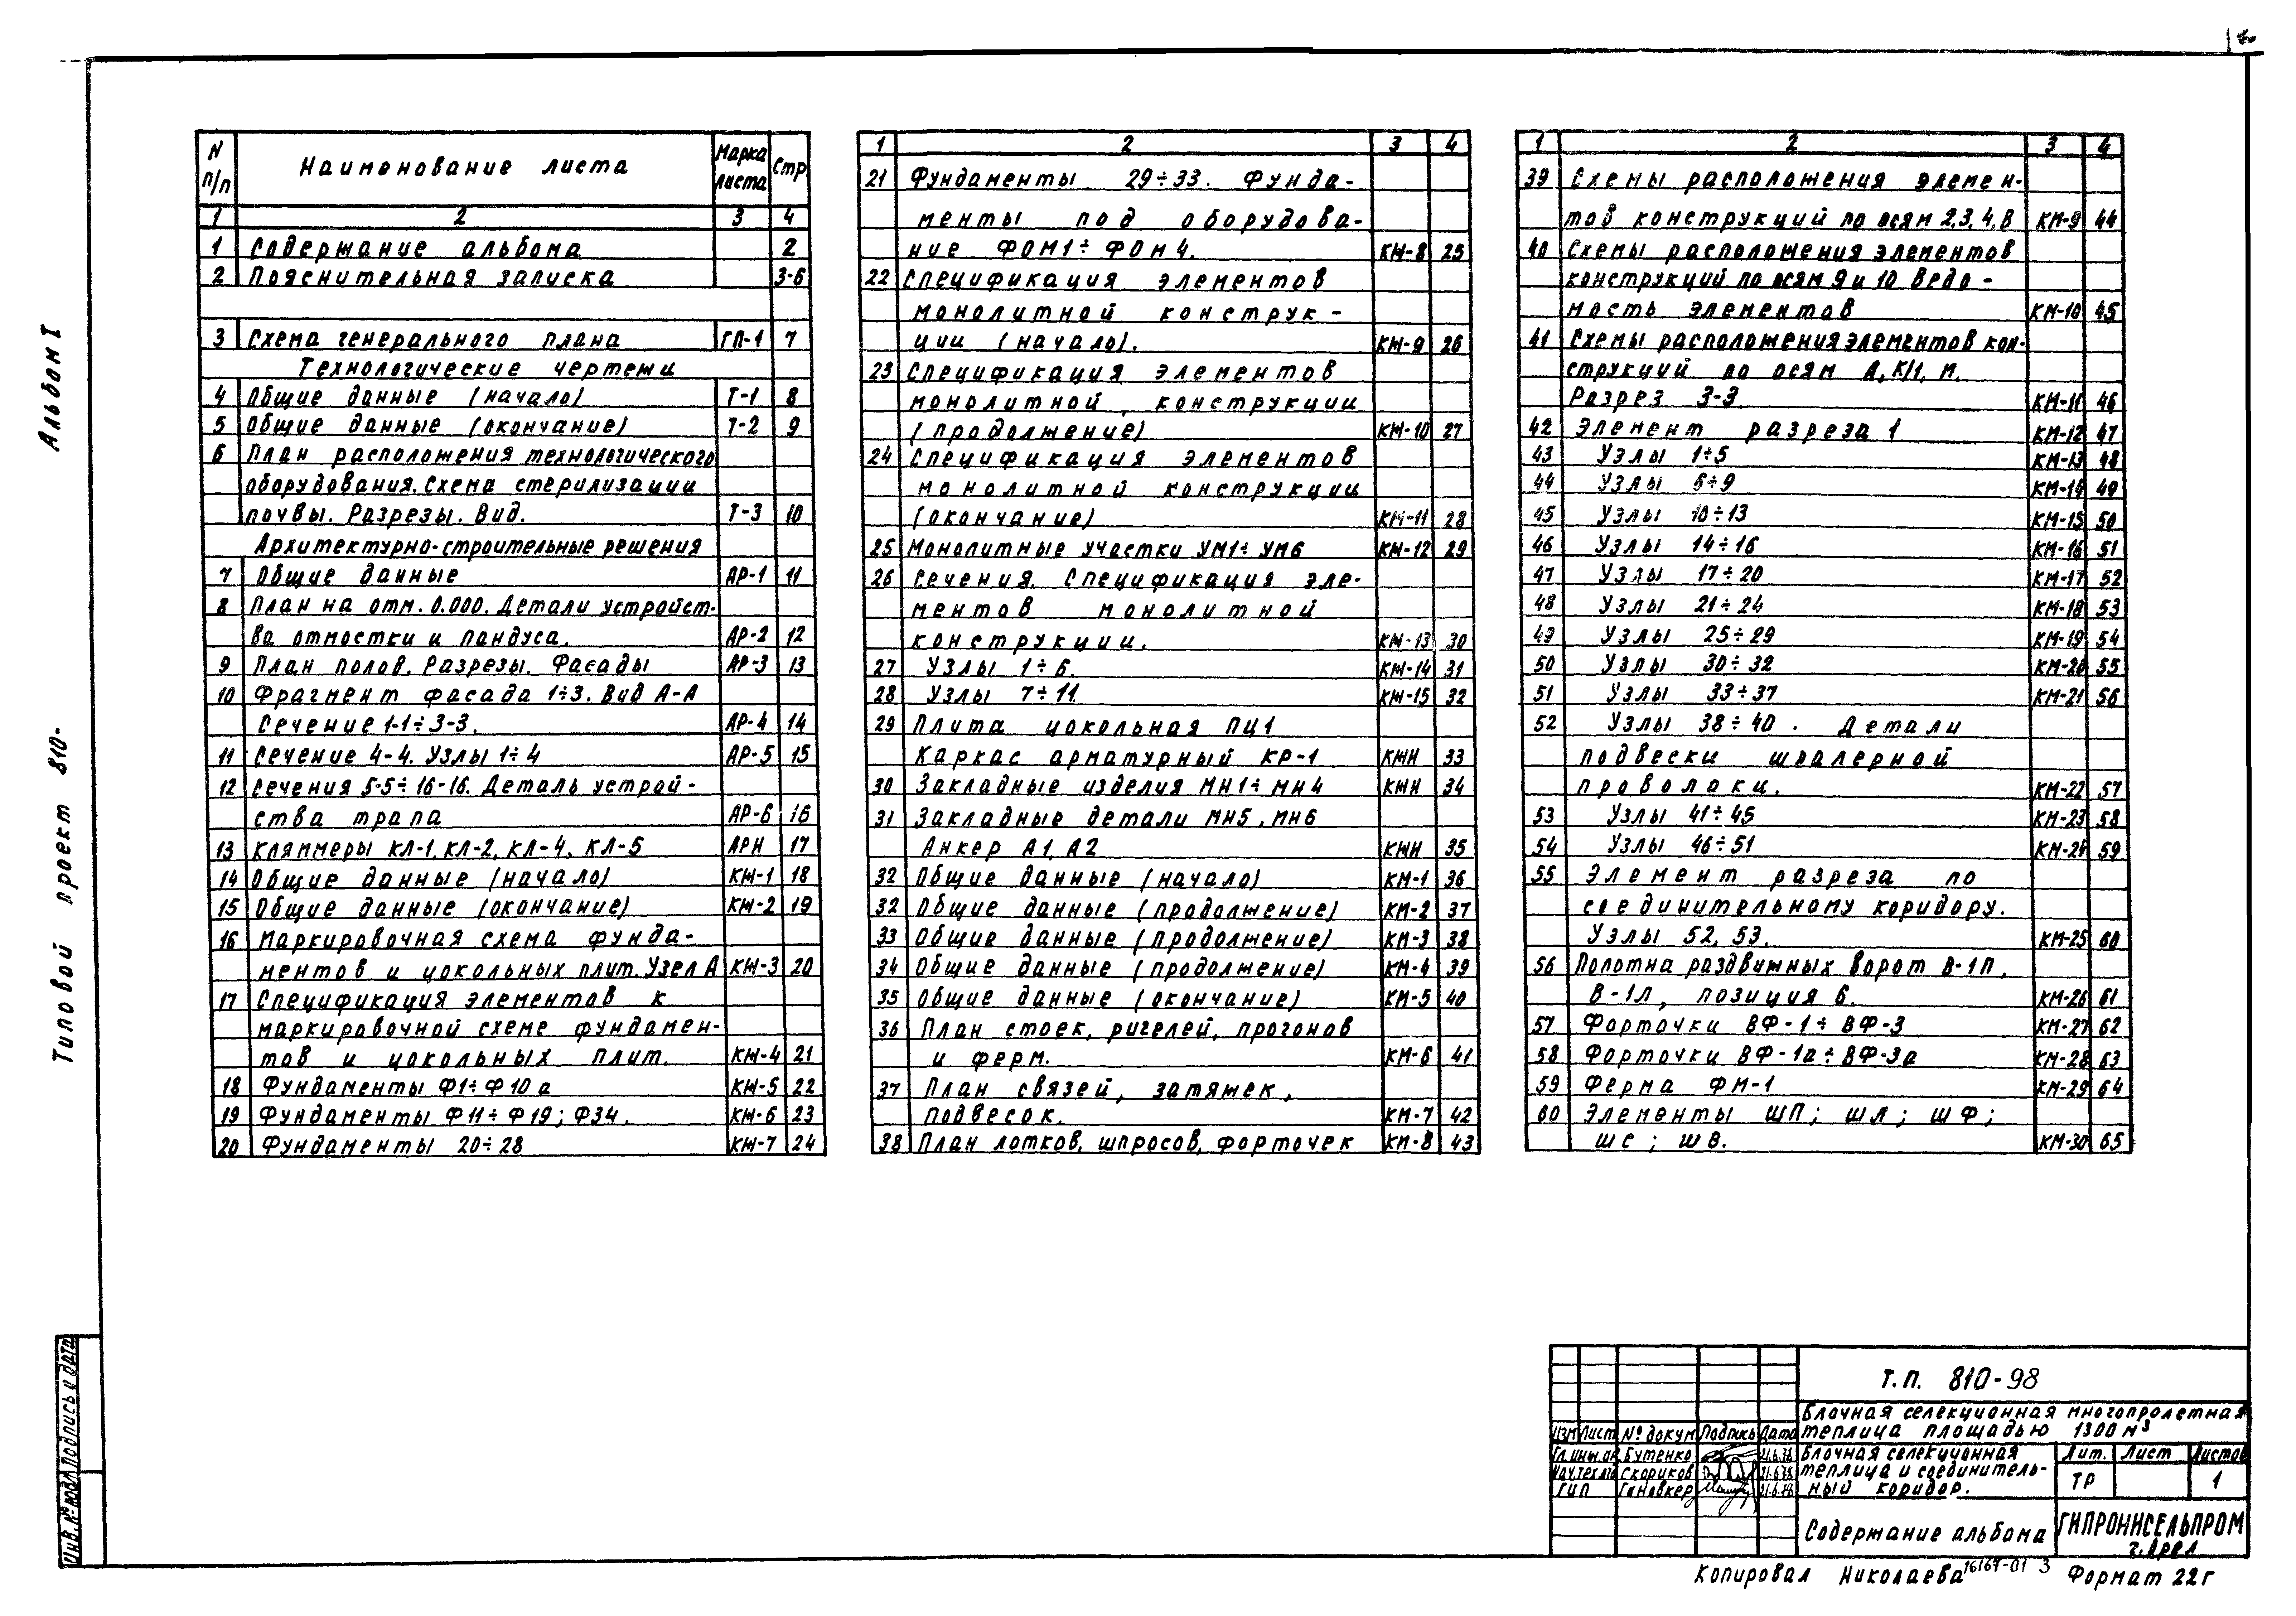 Альбом I
Типовой проект 810-
Инв. № подл. Подпись и дата
N п/п Наименование листа Марка листа Стр.
1 2 3 4
1 Содержание альбома 2
2 Пояснительная записка 3-6
3 Схема генерального плана ГП-1 7
Технологические чертежи
4 Общие данные (начало) Т-1 8
5 Общие данные (окончание) Т-2 9
6 План расположения технологического
оборудования. Схема стерилизации
почвы. Разрезы. Вид. Т-3 10
Архитектурно-строительные решения
7 Общие данные АР-1 11
8 План на отм. 0.000. Детали устройст-
ва отмостки и пандуса. АР-2 12
9 План полов. Разрезы. Фасады АР-3 13
10 Фрагмент фасада 1÷3. Вид А-А
Сечение 1-1÷3-3. АР-4 14
11 Сечение 4-4. Узлы 1÷4 АР-5 15
12 Сечения 5-5÷16-16. Деталь устрой-
ства трапа АР-6 16
13 Кляммеры КЛ-1, КЛ-2, КЛ-4, КЛ-5 АРН 17
14 Общие данные (начало) КЖ-1 18
15 Общие данные (окончание) КЖ-2 19
16 Маркировочная схема фунда-
ментов и цокольных плит. Узел А КЖ-3 20
17 Спецификация элементов к
маркировочной схеме фундамен-
тов и цокольных плит. КЖ-4 21
18 Фундаменты Ф1÷Ф10а КЖ-5 22
19 Фундаменты Ф11÷Ф19; Ф34. КЖ-6 23
20 Фундаменты 20÷28 КЖ-7 24
1 2 3 4
21 Фундаменты 29÷33. Фунда-
менты под оборудова-
ние ФОМ1÷ФОМ4. КЖ-8 25
22 Спецификация элементов
монолитной конструк-
ции (начало). КЖ-9 26
23 Спецификация элементов
монолитной конструкции
(продолжение) КЖ-10 27
24 Спецификация элементов
монолитной конструкции
(окончание) КЖ-11 28
25 Монолитные участки УМ1÷УМ6 КЖ-12 29
26 Сечения. Спецификация эле-
ментов монолитной
конструкции. КЖ-13 30
27 Узлы 1÷6. КЖ-14 31
28 Узлы 7÷11. КЖ-15 32
29 Плита цокольная ПЦ1
Каркас арматурный КР-1 КЖН 33
30 Закладные изделия МН1÷МН4 КЖН 34
31 Закладные детали МН5, МН6
Анкер А1, А2 КЖН 35
32 Общие данные (начало) КМ-1 36
32 Общие данные (продолжение) КМ-2 37
33 Общие данные (продолжение) КМ-3 38
34 Общие данные (продолжение) КМ-4 39
35 Общие данные (окончание) КМ-5 40
36 План стоек, ригелей, прогонов
и ферм. КМ-6 41
37 План связей, затяжек,
подвесок. КМ-7 42
38 План лотков, шпросов, форточек КМ-8 43
1 2 3 4
39 Схемы расположения элемен-
тов конструкций по осям 2,3,4,В КМ-9 44
40 Схемы расположения элементов
конструкций по осям 9 и 10 Ведо-
мость элементов КМ-10 45
41 Схемы расположения элементов кон-
струкций по осям А, К/1, М.
Разрез 3-3. КМ-11 46
42 Элемент разреза 1 КМ-12 47
43 Узлы 1÷5 КМ-13 48
44 Узлы 6÷9 КМ-14 49
45 Узлы 10÷13 КМ-15 50
46 Узлы 14÷16 КМ-16 51
47 Узлы 17÷20 КМ-17 52
48 Узлы 21÷24 КМ-18 53
49 Узлы 25÷29 КМ-19 54
50 Узлы 30÷32 КМ-20 55
51 Узлы 33÷37 КМ-21 56
52 Узлы 38÷40. Детали
подвески шпалерной
проволоки. КМ-22 57
53 Узлы 41÷45 КМ-23 58
54 Узлы 46÷51 КМ-24 59
55 Элемент разреза по
соединительному коридору.
Узлы 52, 53. КМ-25 60
56 Полотна раздвижных ворот В-1П,
В-1Л, позиция 6. КМ-26 61
57 Форточки ВФ-1÷ВФ-3 КМ-27 62
58 Форточки ВФ-1а÷ВФ-3а КМ-28 63
59 Ферма ФМ-1 КМ-29 64
60 Элементы ШП; ШЛ; ШФ;
ШС; ШВ. КМ-30 65
Т.П. 810-98
Блочная селекционная многопролетная
теплица площадью 1300 м³
Изм Лист № докум Подпись Дата
Гл. инж. Бутенко 21.6.78
Нач. тех. Скориков 21.6.78
ГИП Гановкер 21.6.78
Блочная селекционная
теплица и соединитель-
ный коридор.
Лит. Лист Листов
ТР 1
Содержание альбома
ГИПРОНИСЕЛЬПРОМ
г. Орел
Копировал Николаева 16167-01 3 Формат 22г